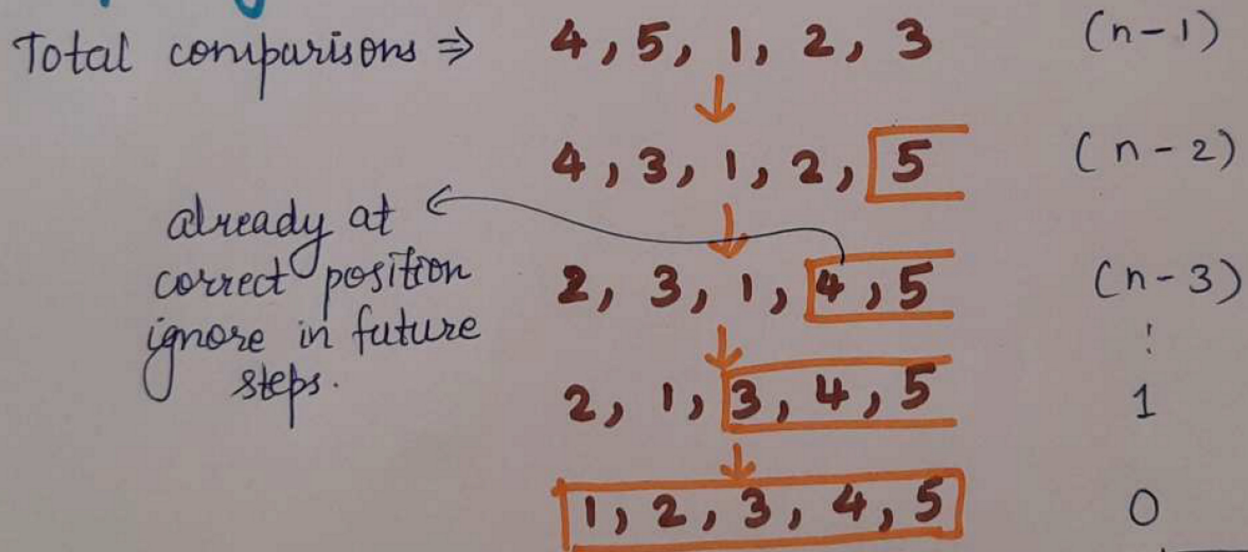 Total comparisons ⇒ 4, 5, 1, 2, 3 (n-1)
4, 3, 1, 2, 5 (n-2)
already at
correct position
ignore in future
steps.
2, 3, 1, 4, 5 (n-3)
⋮
2, 1, 3, 4, 5 1
1, 2, 3, 4, 5 0